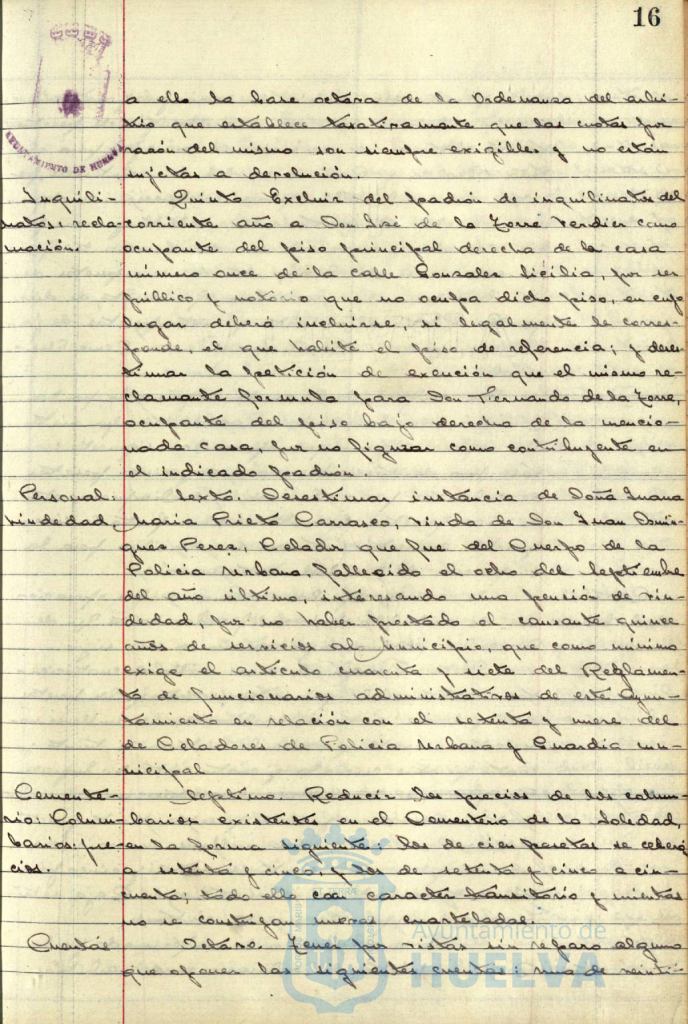 16
AYUNTAMIENTO DE HUELVA
a ello la base octava de la Ordenanza del arbi-
trio que establece taxativamente que las cuotas por
razón del mismo son siempre exigibles y no están
sujetas a devolución.
Inquili-
natos: recla-
mación.
Quinto Excluir del padrón de inquilinatos del
corriente año a Don José de la Torre Verdier como
ocupante del piso principal derecha de la casa
número once de la calle Gonzalez Sicilia, por ser
público y notorio que no ocupa dicho piso, en cuyo
lugar deberá incluirse, si legalmente le corres-
ponde, el que habite el piso de referencia; y deses-
timar la petición de excención que el mismo re-
clamante formula para Don Fernando de la Torre,
ocupante del piso bajo derecha de la mencio-
nada casa, por no figurar como contribuyente en
el indicado padrón.
Personal:
viudedad,
Sexto. Desestimar instancia de Doña Juana
Maria Prieto Carrasco, viuda de Don Juan Domin-
guez Perez, Celador que fue del Cuerpo de la
Policia Urbana, fallecido el ocho del Septiembre
del año último, interesando una pensión de viu-
dedad, por no haber prestado el causante quince
años de servicios al Municipio, que como mínimo
exige el artículo cuarenta y siete del Reglamen-
to de funcionarios administrativos de este Ayun-
tamiento en relación con el setenta y nueve del
de Celadores de Policia Urbana y Guardia mu-
nicipal
Cemente-
rio: Colum-
barios: pre-
cios.
Septimo. Reducir los precios de los colum-
barios existentes en el Cementerio de la Soledad,
en la forma siguiente: los de cien pesetas se
a setenta y cinco, y los de setenta y cinco a cin-
cuenta; todo ello con caracter transitorio y mientras
no se construyan nuevas cuarteladas.
Cuentas
Octavo. Tener por vistas sin reparo alguno
que oponer las siguientes cuentas: una de veinti-
Ayuntamiento de
HUELVA